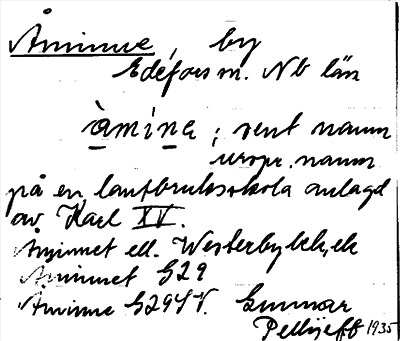 Åminne, by
Edefors sn. Nb län
àmìna; sent namn
urspr. namn
på en lantbruksskola anlagd
av Karl XV.
Åminnet ell. Westerby
Åminnet G29
Åminne G29 SV. Gunnar
Pellijeff 1935